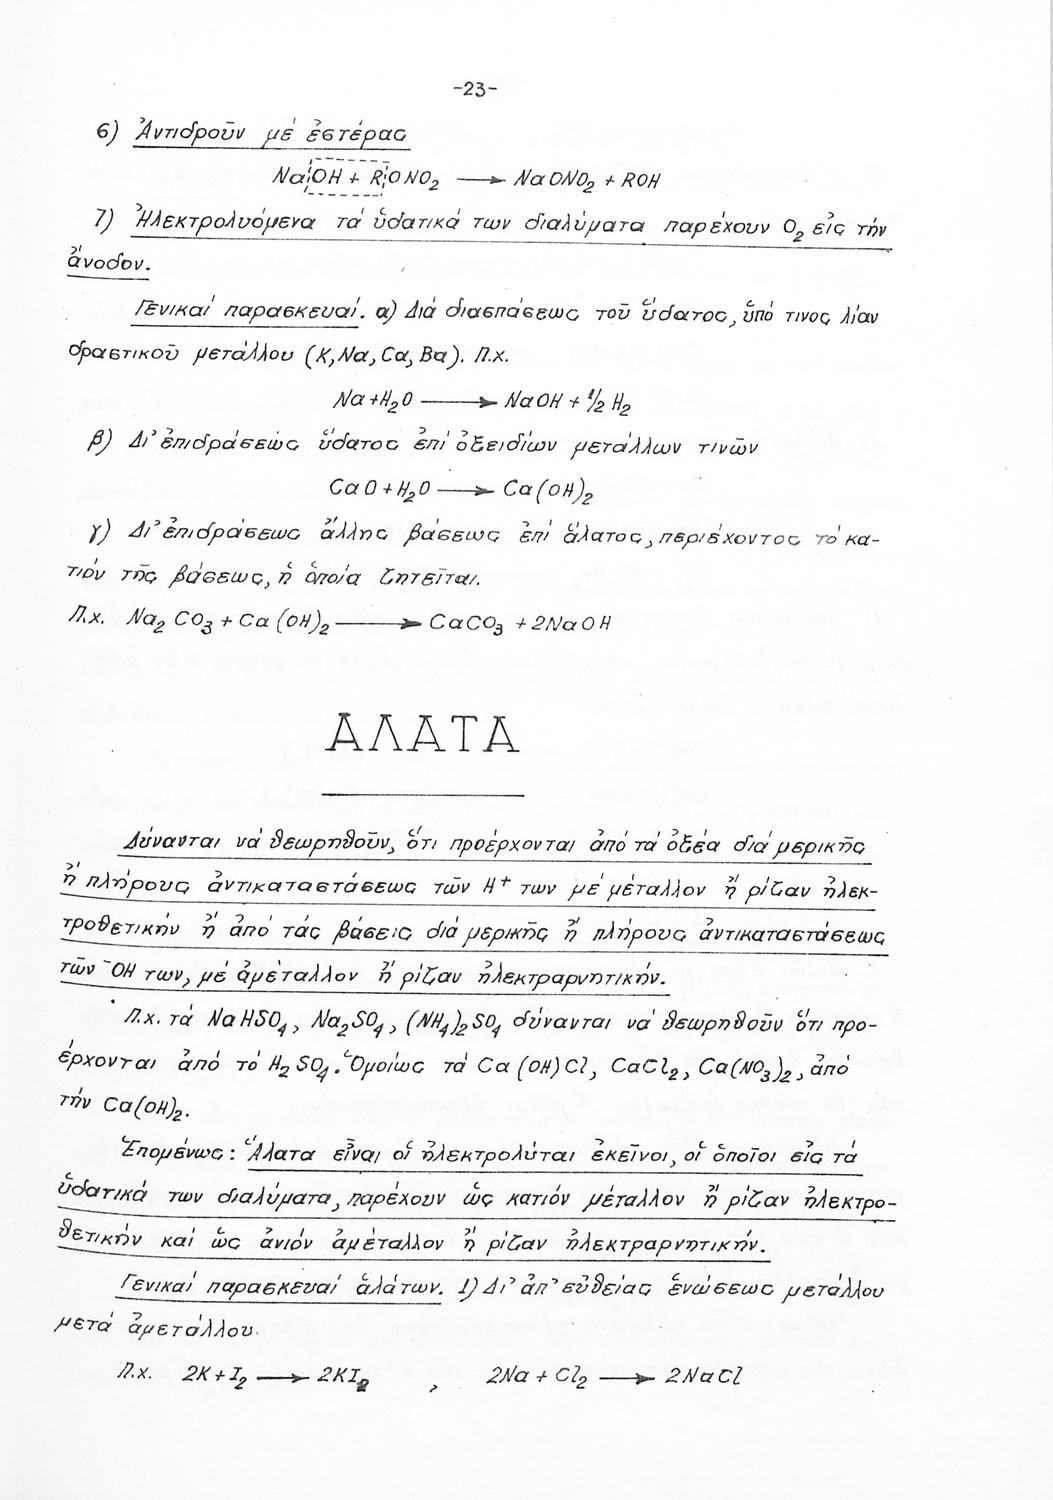 -23-
6) Ἀντιδροῦν μέ ἐστέρας
NaOH + RONO₂ ⟶ NaONO₂ + ROH
7) Ἠλεκτρολυόμενα τά ὑδατικά των διαλύματα παρέχουν O₂ εἰς τήν
ἄνοδον.
Γενικαί παρασκευαί. α) Διά διασπάσεως τοῦ ὕδατος, ὑπό τινος λίαν
δραστικοῦ μετάλλου (K, Na, Ca, Ba). Π.χ.
Na + H₂O ⟶ NaOH + ½ H₂
β) Δι’ ἐπιδράσεως ὕδατος ἐπί ὀξειδίων μετάλλων τινῶν
CaO + H₂O ⟶ Ca(OH)₂
γ) Δι’ ἐπιδράσεως ἄλλης βάσεως ἐπί ἅλατος, περιέχοντος τό κα-
τιόν τῆς βάσεως, ἡ ὁποία ζητεῖται.
Π.χ. Na₂CO₃ + Ca(OH)₂ ⟶ CaCO₃ + 2NaOH
ΑΛΑΤΑ
Δύνανται νά θεωρηθοῦν, ὅτι προέρχονται ἀπό τά ὀξέα διά μερικῆς
ἤ πλήρους ἀντικαταστάσεως τῶν H⁺ των μέ μέταλλον ἤ ρίζαν ἠλεκ-
τροθετικήν ἤ ἀπό τάς βάσεις διά μερικῆς ἤ πλήρους ἀντικαταστάσεως
τῶν ⁻OH των, μέ ἀμέταλλον ἤ ρίζαν ἠλεκτραρνητικήν.
Π.χ. τά NaHSO₄, Na₂SO₄, (NH₄)₂SO₄ δύνανται νά θεωρηθοῦν ὅτι προ-
έρχονται ἀπό τό H₂SO₄. Ὁμοίως τά Ca(OH)Cl, CaCl₂, Ca(NO₃)₂, ἀπό
τήν Ca(OH)₂.
Ἑπομένως: Ἅλατα εἶναι οἱ ἠλεκτρολύται ἐκεῖνοι, οἱ ὁποῖοι εἰς τά
ὑδατικά των διαλύματα, παρέχουν ὡς κατιόν μέταλλον ἤ ρίζαν ἠλεκτρο-
θετικήν καί ὡς ἀνιόν ἀμέταλλον ἤ ρίζαν ἠλεκτραρνητικήν.
Γενικαί παρασκευαί ἁλάτων. 1) Δι’ ἀπ’ εὐθείας ἑνώσεως μετάλλου
μετά ἀμετάλλου.
Π.χ. 2K + I₂ ⟶ 2KI₂ , 2Na + Cl₂ ⟶ 2NaCl